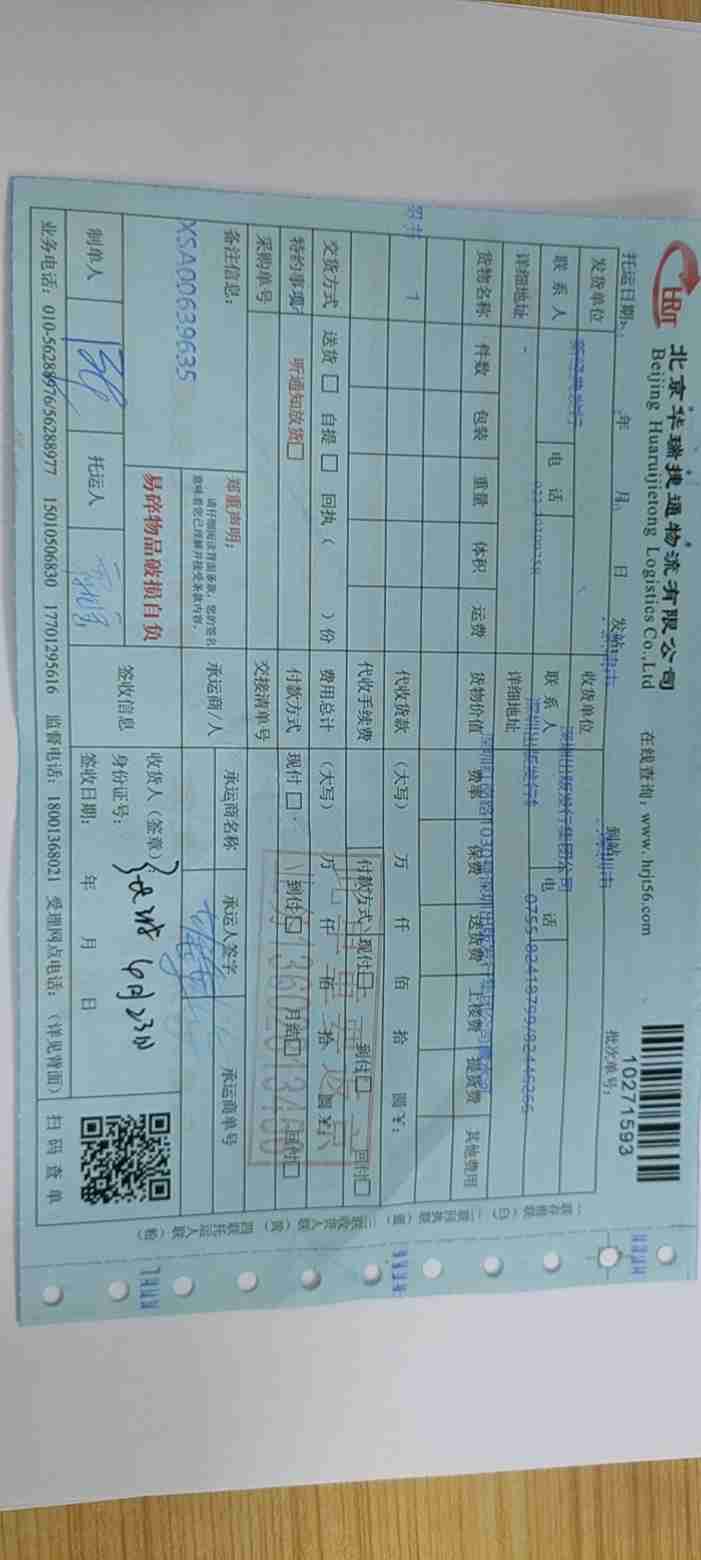 HRJT
北京华瑞捷通物流有限公司
Beijing Huaruijietong Logistics Co.,Ltd
在线查询：www.hrjt56.com
10271593
托运日期： 年 月 日 发站 到站 批次单号：
发货单位 收货单位 深圳出版发行集团公司
联系人 电话 联系人 深圳出版发行 电话 0755-82418799/82446266
详细地址 详细地址
货物名称 件数 包装 重量 体积 运费 货物价值 费率 保费 送货费 上楼费 提货费 其他费用
1
代收货款 （大写） 万 仟 佰 拾 圆 ¥：
代收手续费 付款方式 现付 到付 回付
交货方式 送货 自提 回执（ ）份 费用总计 （大写） 万 仟 佰 拾 圆 ¥：
特约事项 听通知放货 付款方式 现付 到付 月结 回付
采购单号 交接清单号
备注信息：
XSA00639635
郑重声明：
请仔细阅读背面条款，您的签名
意味着您已理解并接受条款内容。
易碎物品破损自负
承运商/人 承运商名称 承运人签字 承运商单号
签收信息 收货人（签章） 6月23日
身份证号：
签收日期： 年 月 日
制单人 托运人
扫码查单
业务电话：010-56288976/56288977 15010506830 17701295616 监督电话：18001368021 受理网点电话：（详见背面）
一联存根联（白） 二联回执联（蓝） 三联收货人联（黄） 四联托运人联（粉）